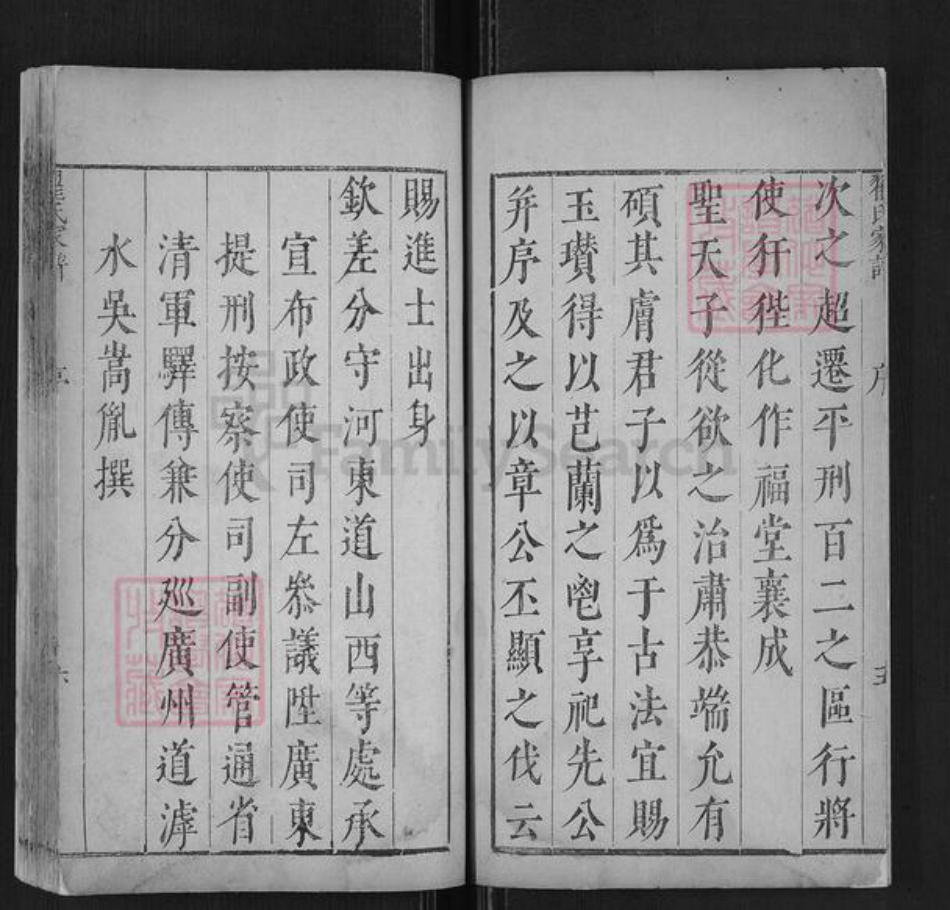 次之超遷平刑百二之區行將
使犴狴化作福堂襄成
聖天子從欲之治肅恭端允有
碩其膚君子以爲于古法宜賜
玉瓚得以芑蘭之鬯享祀先公
并序及之以章公丕顯之伐云
賜進士出身
欽差分守河東道山西等處承
宣布政使司左叅議陞廣東
提刑按察使司副使管通省
清軍驛傳兼分廵廣州道滹
水吳嵩胤撰
序
FamilySearch